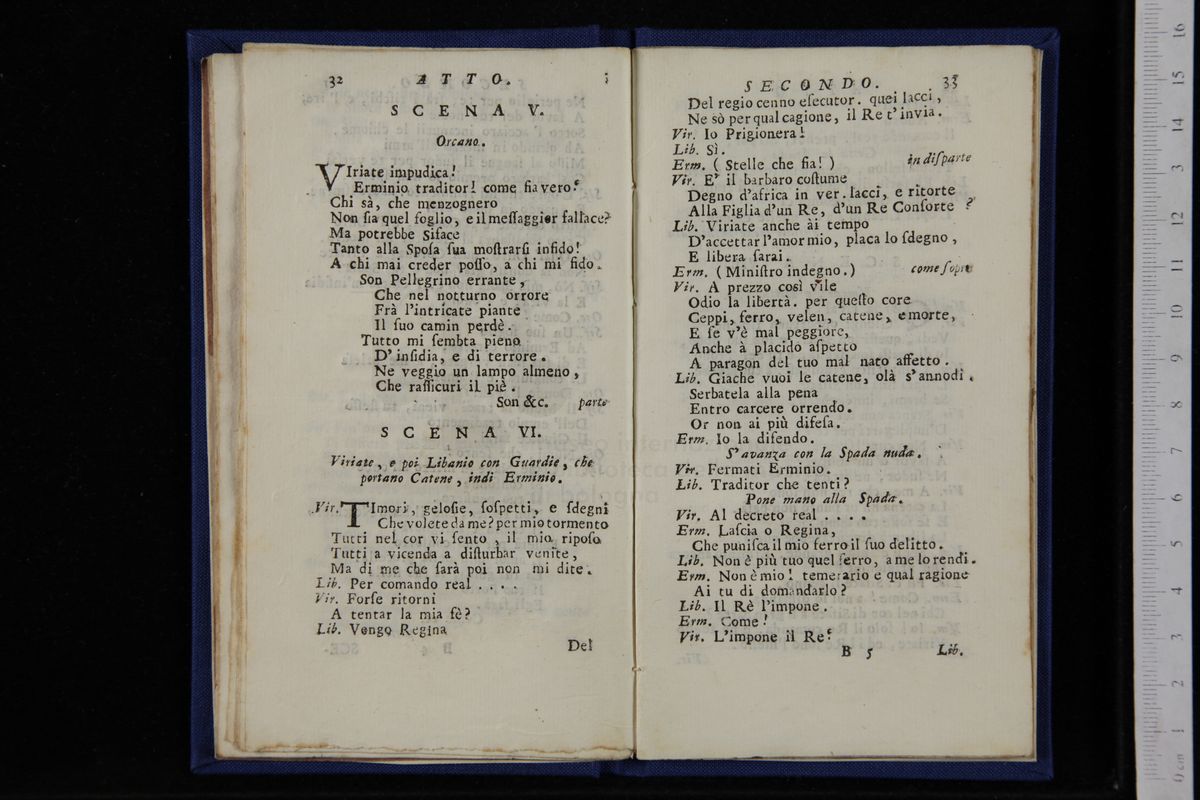 32 ATTO.
SCENA V.
Orcano.
VIriate impudica!
Erminio traditor! come fia vero?
Chi sà, che menzognero
Non ſia quel foglio, e il meſſaggier fallace?
Ma potrebbe Siface
Tanto alla Spoſa ſua moſtrarſi infido!
A chi mai creder poſſo, a chi mi fido.
Son Pellegrino errante,
Che nel notturno orrore
Frà l'intricate piante
Il ſuo camin perdè.
Tutto mi ſembta pieno
D' inſidia, e di terrore.
Ne veggio un lampo almeno,
Che raſſicuri il piè.
Son &c. parte
SCENA VI.
Viriate, e poi Libanio con Guardie, che
portano Catene, indi Erminio.
Vir. TImori, geloſie, ſoſpetti, e ſdegni
Che volete da me? per mio tormento
Tutti nel cor vi ſento, il mio ripoſo
Tutti a vicenda a diſturbar venite,
Ma di me che ſarà poi non mi dite.
Lib. Per comando real . . . .
Vir. Forſe ritorni
A tentar la mia fè?
Lib. Vengo Regina
Del
SECONDO. 33
Del regio cenno eſecutor. quei lacci,
Ne sò per qual cagione, il Re t'invia.
Vir. Io Prigionera!
Lib. Sì.
Erm. ( Stelle che fia! ) in diſparte
Vir. E' il barbaro coſtume
Degno d'africa in ver. lacci, e ritorte
Alla Figlia d'un Re, d'un Re Conſorte?
Lib. Viriate anche ài tempo
D'accettar l'amor mio, placa lo ſdegno,
E libera ſarai.
Erm. ( Miniſtro indegno. ) come ſopra
Vir. A prezzo così vile
Odio la libertà. per queſto core
Ceppi, ferro, velen, catene, e morte,
E ſe v'è mal peggiore,
Anche à placido aſpetto
A paragon del tuo mal nato affetto.
Lib. Giache vuoi le catene, olà s'annodi,
Serbatela alla pena
Entro carcere orrendo.
Or non ai più difeſa.
Erm. Io la difendo.
S'avanza con la Spada nuda.
Vir. Fermati Erminio.
Lib. Traditor che tenti?
Pone mano alla Spada.
Vir. Al decreto real . . . .
Erm. Laſcia o Regina,
Che puniſca il mio ferro il ſuo delitto.
Lib. Non è più tuo quel ferro, a me lo rendi.
Erm. Non è mio! temerario e qual ragione
Ai tu di domandarlo?
Lib. Il Rè l'impone.
Erm. Come!
Vir. L'impone il Re?
B 5 Lib.